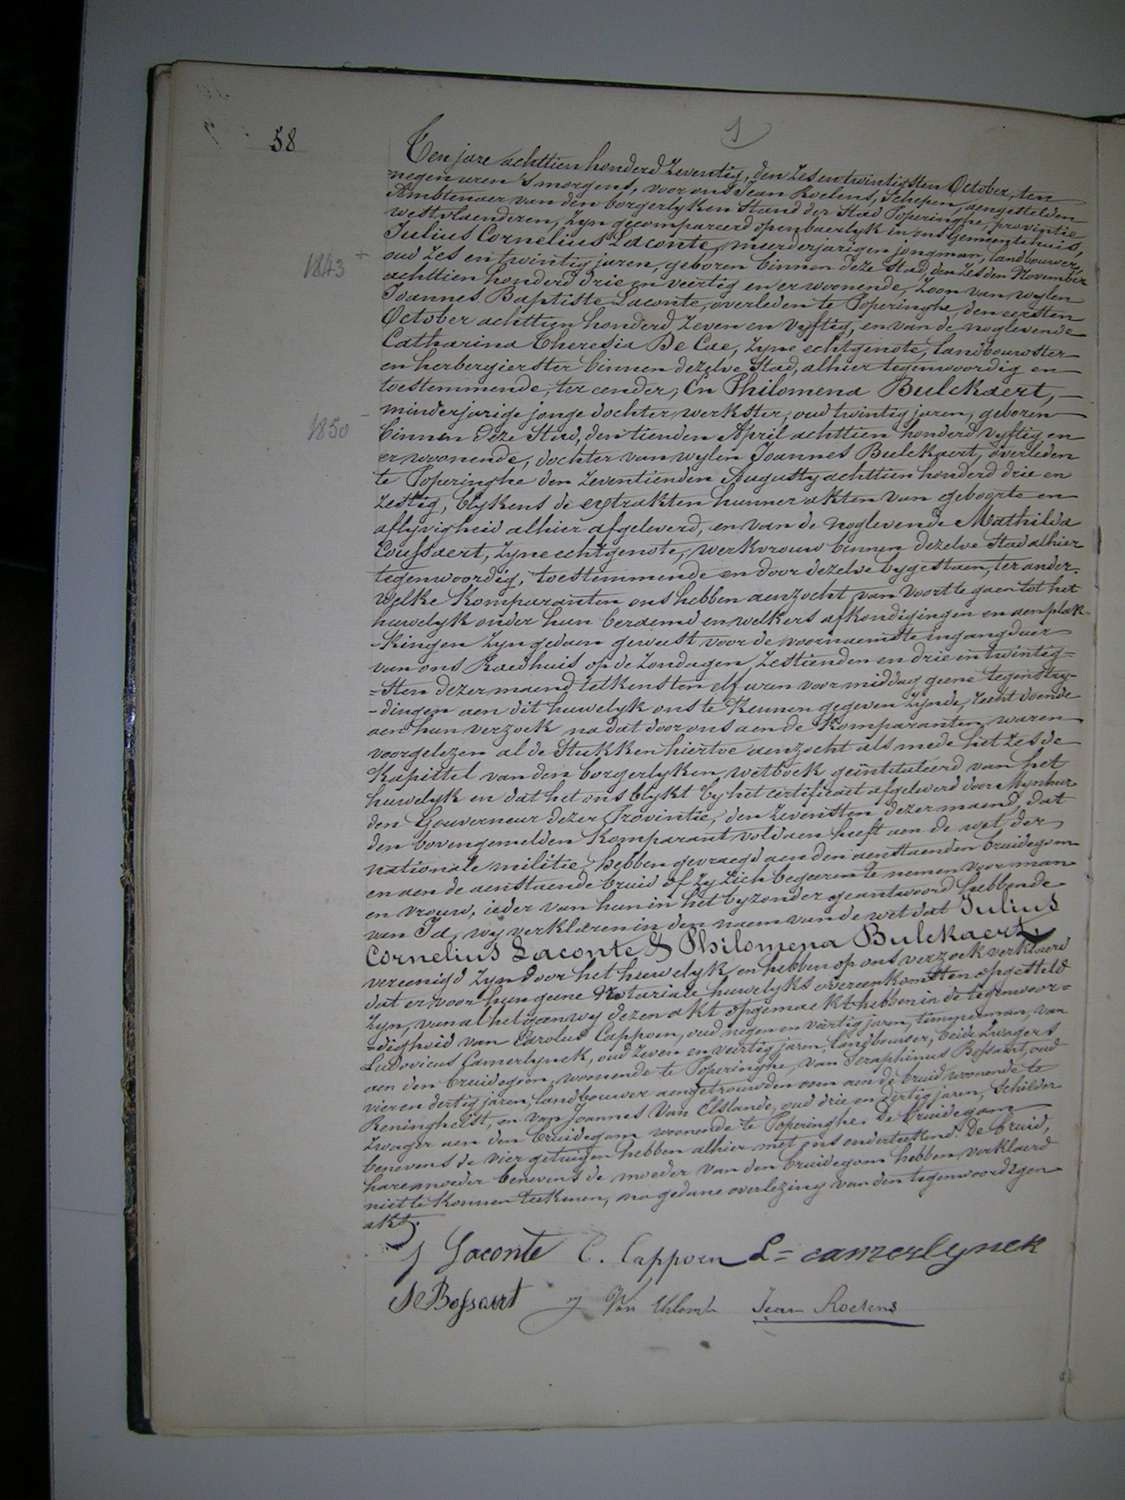 58
Ten jare achttien honderd zeventig, den zes en twintigsten October, ten
negen uren 's morgens, voor ons Jean Roelens, Schepen, aengestelden
Ambtenaer van den borgerlyken Stand der Stad Poperinghe, provintie
westvlaenderen, zyn gecompareerd openbaerlyk in ons Gemeentehuis,
Julius Cornelius Laconte, meerderjarigen jongman, landbouwer,
1843 +
oud zes en twintig jaren, geboren binnen deze Stad, den zesden November
achttien honderd drie en veertig en er woonende, zoon van wylen
Joannes Baptiste Laconte, overleden te Poperinghe, den eersten
October achttien honderd zeven en vyftig, en van de noglevende
Catharina Theresia De Cae, zyne echtgenote, landbouwster
en herbergierster binnen dezelve Stad, alhier tegenwoordig en
toestemmende, ter eender; En Philomena Bulckaert, —
minderjarige jonge dochter werkster, oud twintig jaren, geboren
1850 -
binnen deze Stad, den tienden April achttien honderd vyftig en
er woonende, dochter van wylen Joannes Bulckaert, overleden
te Poperinghe den zeventienden Augusty achttien honderd drie en
zestig, blykens de extrakten hunner akten van geboorte en
aflyvigheid alhier afgeleverd, en van de noglevende Mathilda
zyne echtgenote, werkvrouw binnen dezelve Stad alhier
tegenwoordig, toestemmende en door dezelve bygestaen, ter ander,
Welke Komparanten ons hebben aenzocht van voort te gaen tot het
huwelyk onder hun beraemd en welkers afkondigingen en aenplak-
-kingen zyn gedaen geweest voor de voornaemste ingangdeur
van ons Raedhuis op de zondagen, zestienden en drie en twintig=
=sten dezer maend telkensten elf uren voormiddag geene tegenstry-
-dingen aen dit huwelyk ons te kennen gegeven zynde, recht doende
aen hun verzoek na dat door ons aen de Komparanten waren
voorgelezen al de Stukken hiertoe aenzocht als mede het zesde
Kapittel van den borgerlyken wetboek geïntituleerd van het
huwelyk en dat het ons blykt by het certificaet afgeleverd door Mynheer
den Gouverneur dezer Provintie, den zevensten dezer maend, dat
den bovengemelden Komparant voldaen heeft aen de wet der
nationale militie, hebben gevraegd aen den aenstaenden bruidegom
en aen de aenstaende bruid of zy zich begeeren te nemen voor man
en vrouw, ieder van hun in het byzonder geantwoord hebbende
van Ja, wy verklaren in den naem van de wet dat Julius
Cornelius Laconte & Philomena Bulckaert
vereenigd zyn door het huwelyk en hebben op ons verzoek verklaerd
dat er voor hun geene Notariale huwelyks overeenkomsten opgesteld
zyn, van al hetgeen wy dezen akt opgemaekt hebben in de tegenwoor=
=digheid van Carolus Cappoen, oud negen en veertig jaren, timmerman, van
Ludovicus Camerlynck, oud zeven en veertig jaren, landbouwer, beide zwagers
aen den bruidegom, woonende te Poperinghe, van Seraphinus Bossaert, oud
vier en dertig jaren, landbouwer aengetrouwden oom aen de bruid woonende te
Reninghelst, en van Joannes Van Elslande, oud drie en dertig jaren, Schilder
zwager aen den bruidegom woonende te Poperinghe. De bruidegom
benevens de vier getuigen hebben alhier met ons onderteekend. De bruid,
hare moeder benevens de moeder van den bruidegom hebben verklaerd
niet te konnen teekenen, na gedane overlezing van den tegenwoordigen
akt.
J Laconte C. Cappoen L= camerlynck
S Bossaert J Van Elslande Jean Roelens